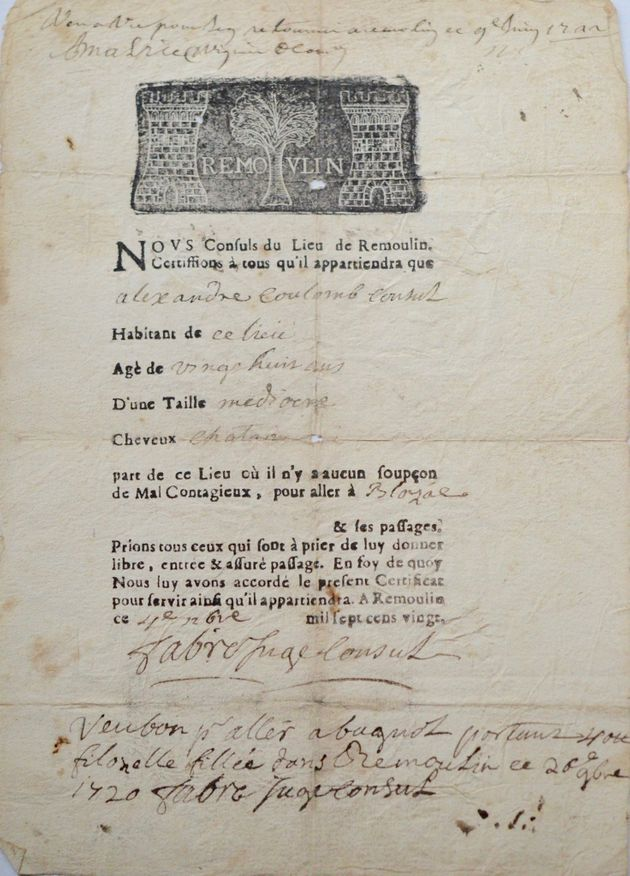 REMOVLIN
NOVS Consuls du Lieu de Remoulin.
Certiffions à tous qu'il appartiendra que
alexandre Coulomb Consul
Habitant de ce lieu
Agé de vingt huit ans
D'une Taille mediocre
Cheveux chatan
part de ce Lieu où il n'y a aucun soupçon
de Mal Contagieux, pour aller à Blozac
& ses passages.
Prions tous ceux qui sont à prier de luy donner
libre, entrée & assuré passage. En foy de quoy
Nous luy avons accordé le present Certificat
pour servir ainsi qu'il appartiendra. A Remoulin
ce 4e nbre mil sept cens vingt.
fabre Juge Consul
Veu bon pr aller a portant
fillée dans Remoulin ce 20e 9bre
1720 fabre Juge Consul